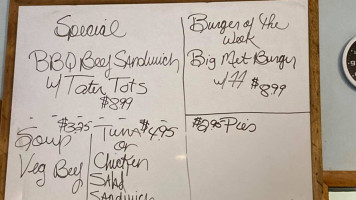 Special
BBQ Beef Sandwich
w/ Tater Tots
$8.99
Burger of the
week
Big Mct Burger
w/ FF $8.99
$3.25
Soup
Veg Beef
$4.95
Tuna
or
Chicken
Salad
Sandwich
$2.95 Pies